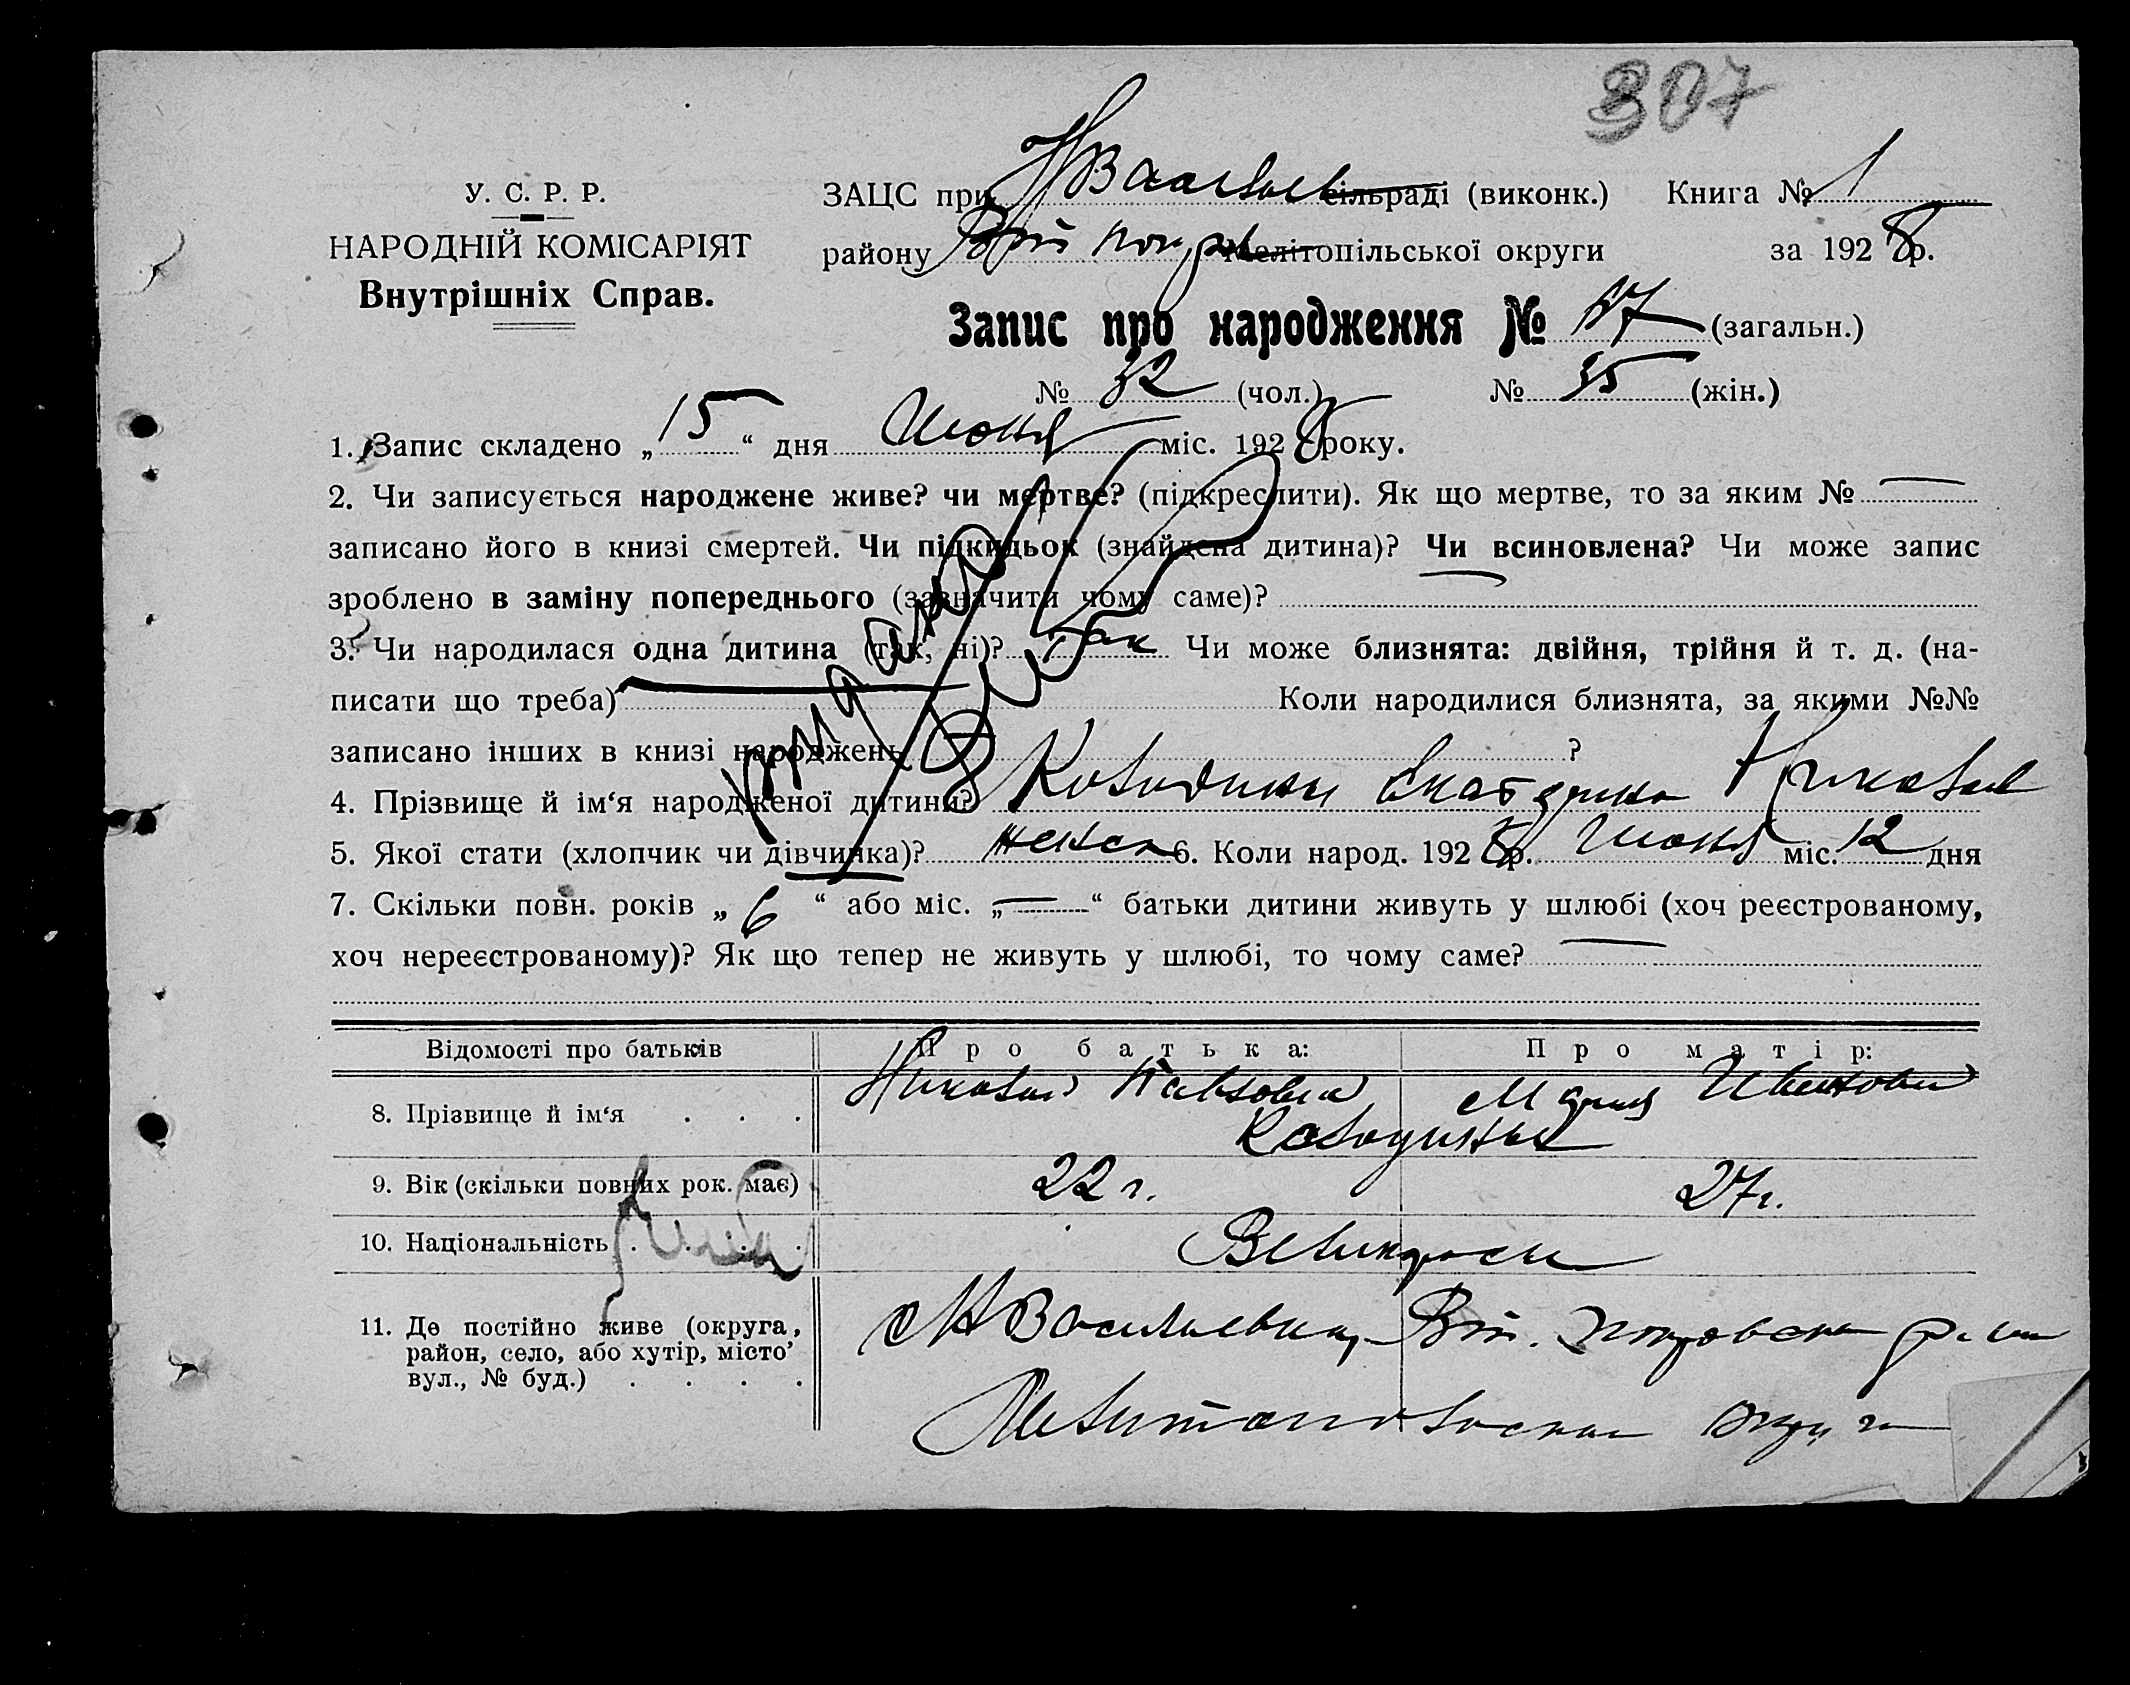 307
У. С. Р. Р.
НАРОДНІЙ КОМІСАРІЯТ
Внутрішніх Справ.
ЗАЦС при НВасильев сільраді (виконк.) Книга № 1
району Вт Покр Мелітопільської округи за 1928 р.
Запис про народження № 67 (загальн.)
№ 32 (чол.) № 35 (жін.)
1. Запис складено „15“ дня Июня міс. 1928 року.
2. Чи записується народжене живе? чи мертве? (підкреслити). Як що мертве, то за яким № —
записано його в книзі смертей. Чи підкидьок (знайдена дитина)? Чи всиновлена? Чи може запис
зроблено в заміну попереднього (зазначити чому саме)?
3. Чи народилася одна дитина (так, ні)? Так Чи може близнята: двійня, трійня й т. д. (на-
писати що треба) Коли народилися близнята, за якими №№
записано інших в книзі народжень ?
4. Прізвище й ім‘я народженої дитини? Екатерина Николаев
5. Якої стати (хлопчик чи дівчинка)? женск 6. Коли народ. 1928 р. Июня міс. 12 дня
7. Скільки повн. років „6“ або міс. „—“ батьки дитини живуть у шлюбі (хоч реєстрованому,
хоч нереєстрованому)? Як що тепер не живуть у шлюбі, то чому саме? —
Відомості про батьків Про батька: Про матір:
8. Прізвище й ім‘я . . . Николай Павлович Мария Ивановна
9. Вік (скільки повних рок. має) 22 г. 27 г.
10. Національність . . . . Великросы
11. Де постійно живе (округа, район, село, або хутір, місто’ вул., № буд.) . . . .
с Н Васильевка, Вт. Покровского р-на
Мелитопольская округа